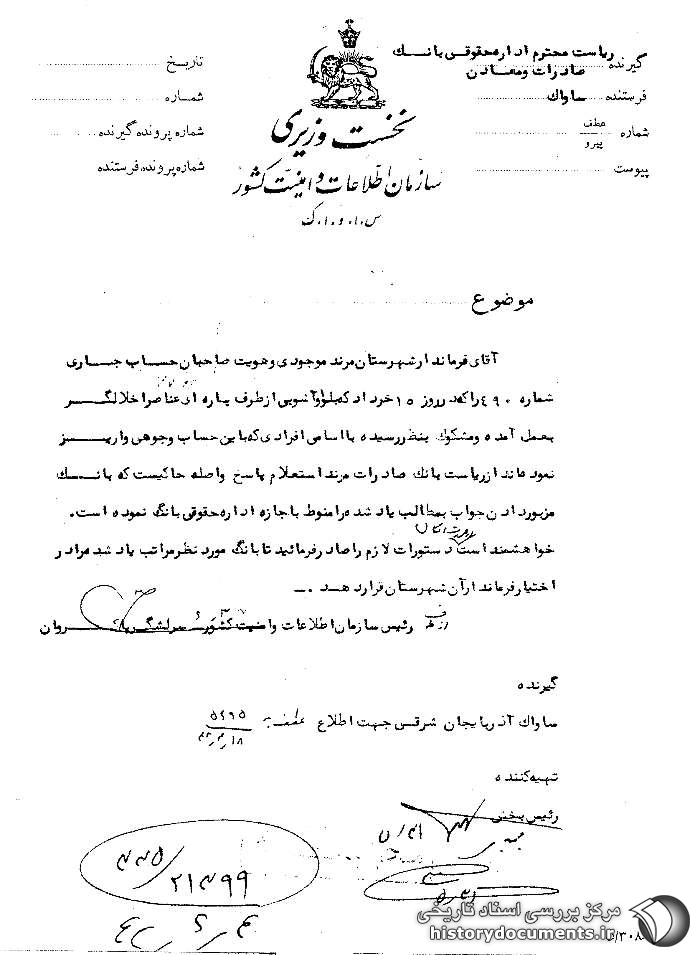 گیرنده ریاست محترم اداره حقوقی بانک
صادرات و معادن
فرستنده ساواک
شماره عطف
پیرو
پیوست
تاریخ
شماره
شماره پرونده گیرنده
شماره پرونده فرستنده
نخست وزیری
سازمان اطلاعات و امنیت کشور
س.ا.و.ا.ک
موضوع
آقای فرماندار شهرستان مرند موجودی و هویت صاحبان حساب جاری
شماره ۴۹۰ را که در روز ۱۵ خرداد که بلوا و آشوبی از طرف پاره ای عناصر اخلالگر
بعمل آمده و مشکوک بنظر رسیده با اسامی افرادی که باین حساب وجوهی واریز
نموده اند از ریاست بانک صادرات مرند استعلام پاسخ واصله حاکیست که بانک
مزبور دادن جواب بمطالب یاد شده را منوط باجازه اداره حقوقی بانک نموده است.
خواهشمند است در صورت امکان دستورات لازم را صادر فرمائید تا بانک مورد نظر مراتب یاد شده را در
اختیار فرماندار آن شهرستان قرار دهد.-
از طرف رئیس سازمان اطلاعات و امنیت کشور سرلشگر پاکروان
گیرنده
ساواک آذربایجان شرقی جهت اطلاع عطف به ۵۴۹۵
تهیه کننده
رئیس بخش
۲۱۳۹۹
مرکز بررسی اسناد تاریخی
historydocuments.ir